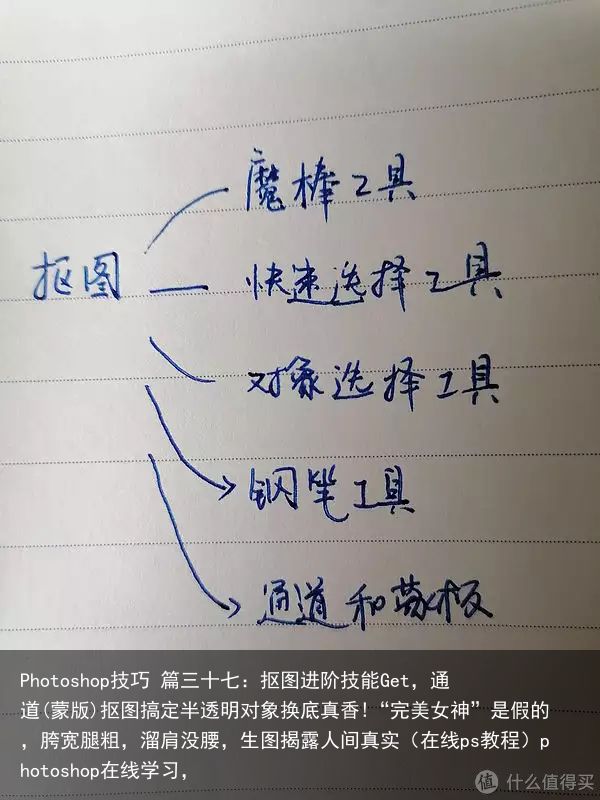 魔棒工具
抠图
快速选择工具
对象选择工具
钢笔工具
通道和蒙板
Photoshop技巧 篇三十七：抠图进阶技能Get，通
道(蒙版)抠图搞定半透明对象换底真香！“完美女神”是假的
，胯宽腿粗，溜肩没腰，生图揭露人间真实（在线ps教程）p
hotoshop在线学习，
值 什么值得买